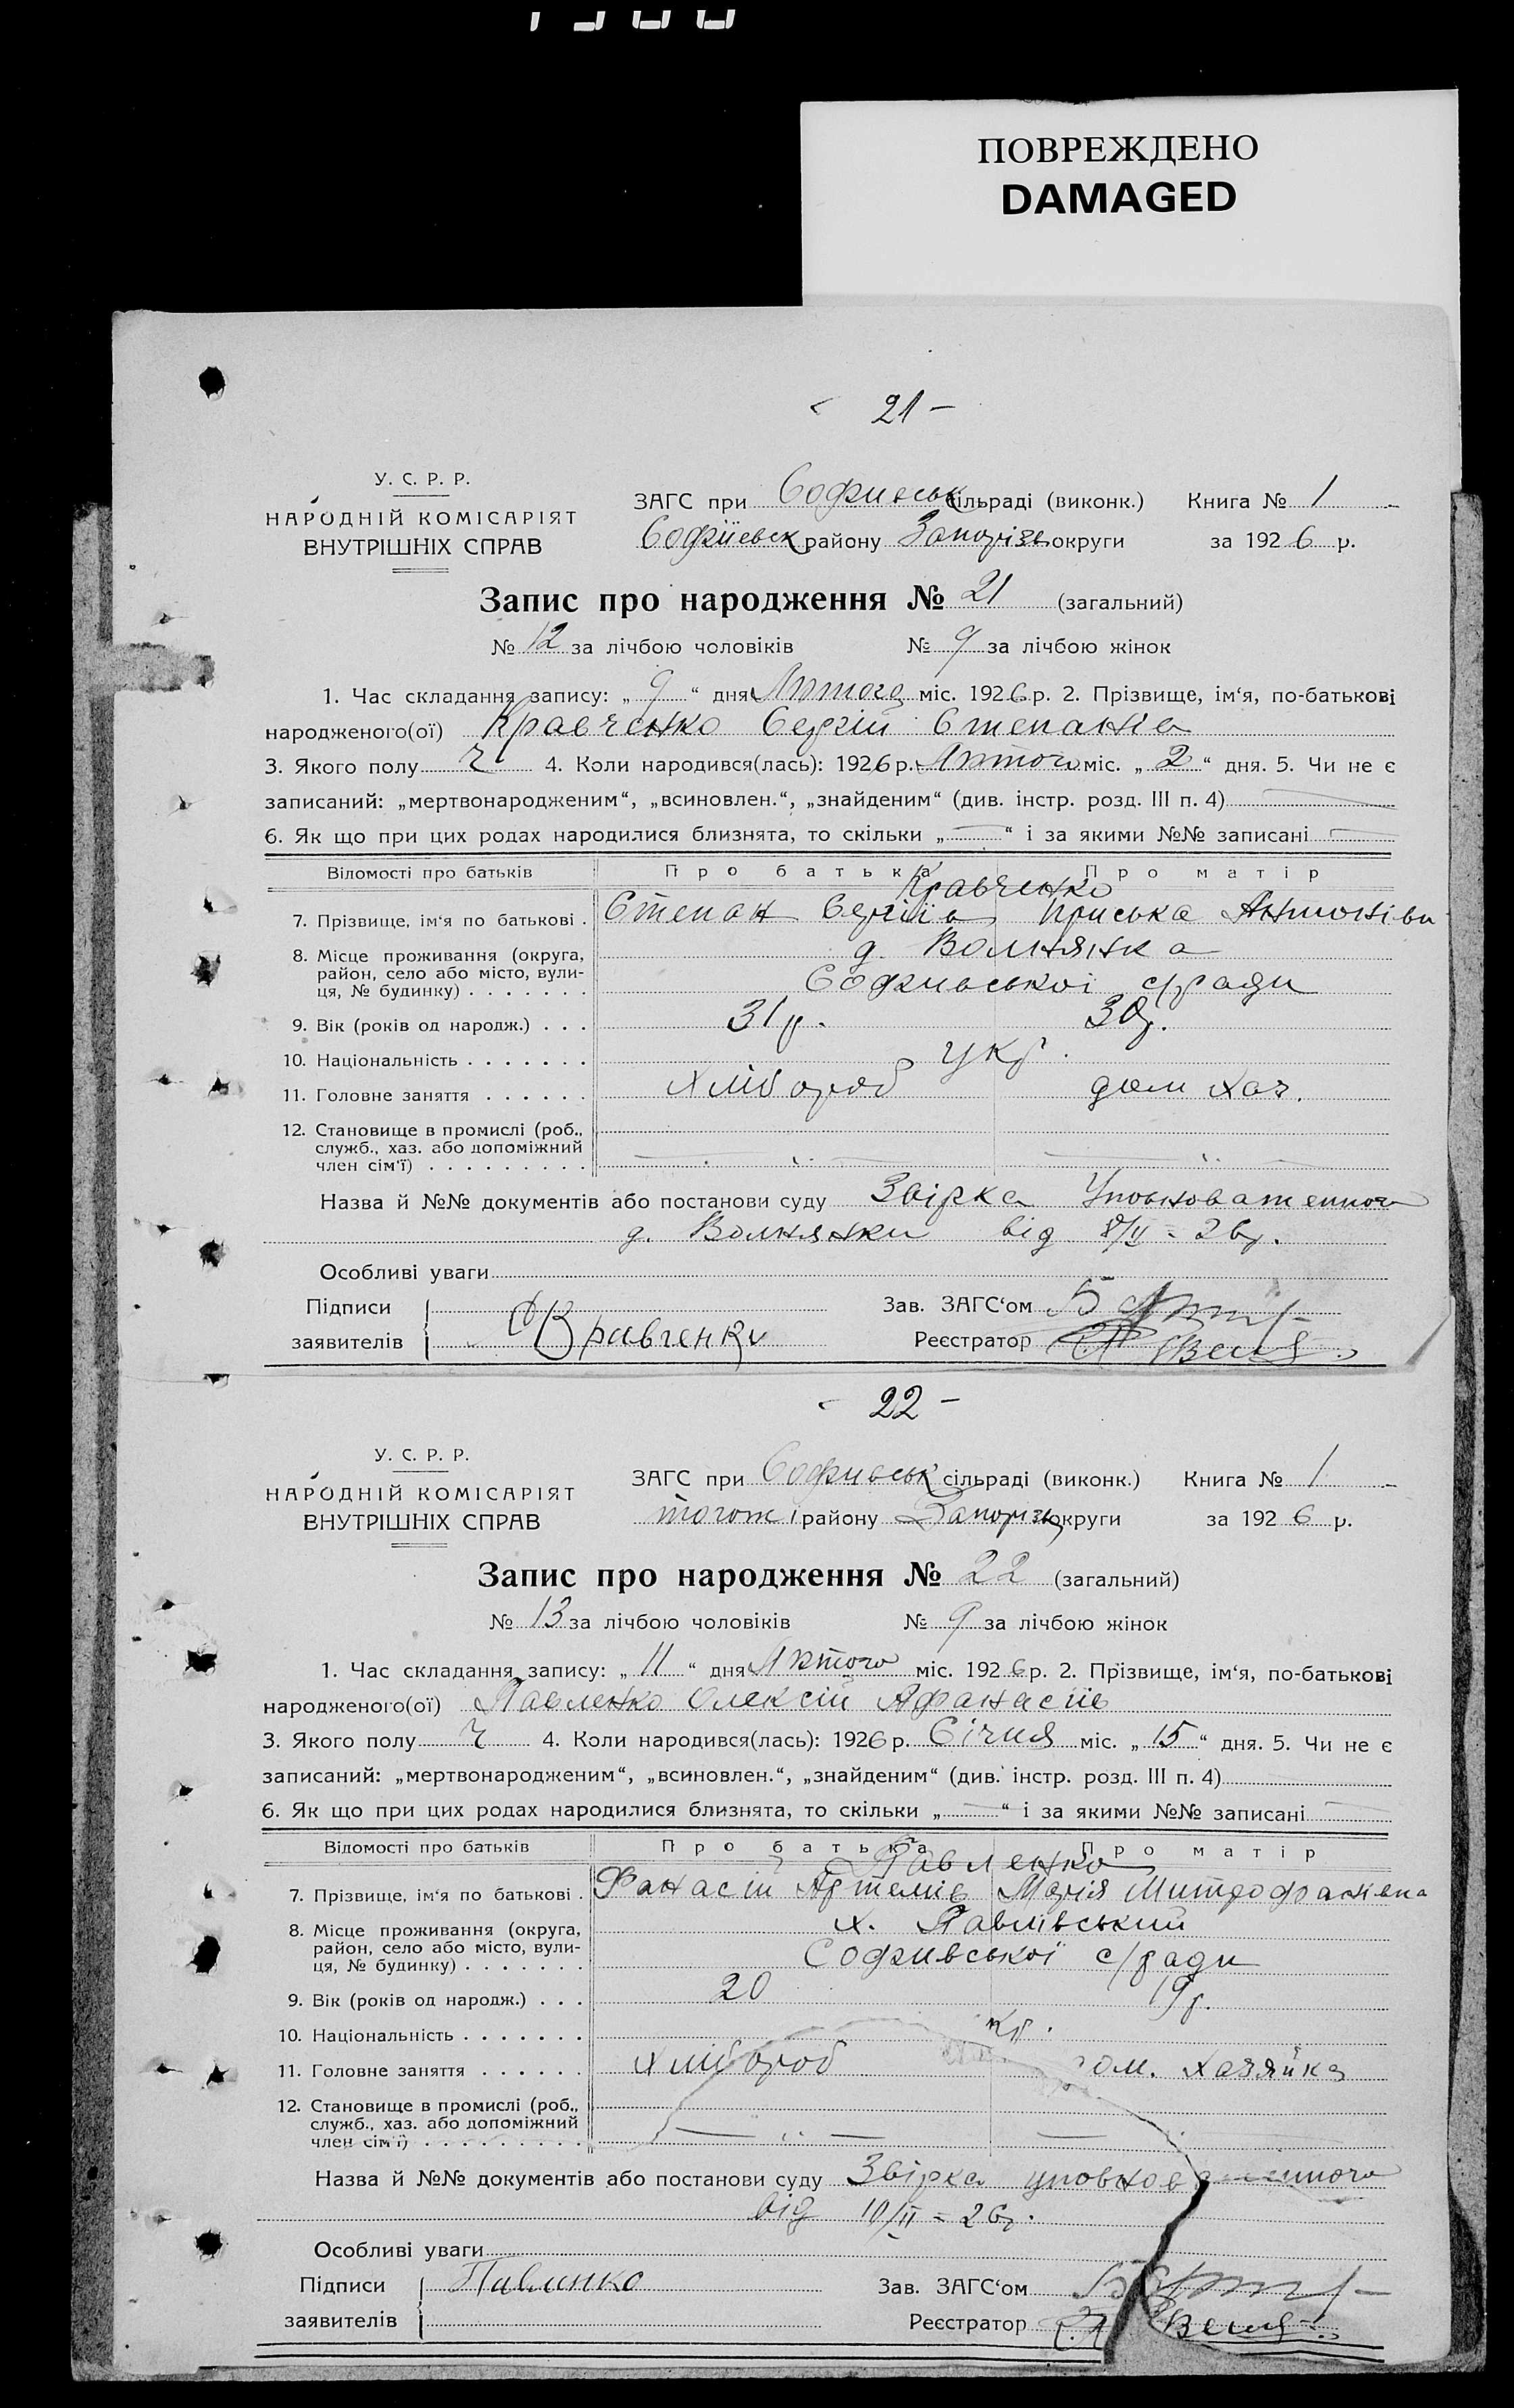 ПОВРЕЖДЕНО
DAMAGED
21 –
У. С. Р. Р.
НАРОДНІЙ КОМІСАРІЯТ
ВНУТРІШНІХ СПРАВ
ЗАГС при Софиевськ сільраді (виконк.) Книга № 1
Софіевськ району Запоріз округи за 1926 р.
Запис про народження № 21 (загальний)
№ 12 за лічбою чоловіків № 9 за лічбою жінок
1. Час складання запису: „ 9 “ дня Лютого міс. 1926 р. 2. Прізвище, ім‘я, по-батькові
народженого(ої) Кравченко Сергій Степанів
3. Якого полу ч 4. Коли народився(лась): 1926 р. Лютого міс. „ 2 “ дня. 5. Чи не є
записаний: „мертвонародженим“, „всиновлен.“, „знайденим“ (див. інстр. розд. III п. 4)
6. Як що при цих родах народилися близнята, то скільки „ — “ і за якими №№ записані —
Відомості про батьків Про батька Про матір
Кравченко
7. Прізвище, ім‘я по батькові . Степан Сергіїв Приська Антонівн
8. Місце проживання (округа, район, село або місто, вули- ця, № будинку) . . . . . . . д. Волнянка
Софиівської с/ради
9. Вік (років од народж.) . . . 31 р. 30 р.
10. Національність . . . . . . . укр.
11. Головне заняття . . . . . . Хлібороб дом хаз.
12. Становище в промислі (роб., служб., хаз. або допоміжний член сім‘ї) . . . . . . . . . — „ — — „ —
Назва й №№ документів або постанови суду Звірка Уповноваженного
д. Волнянки від 8/II = 26 р.
Особливі уваги
Підписи Зав. ЗАГС‘ом
заявителів Кравченко Реєстратор
22 –
У. С. Р. Р.
НАРОДНІЙ КОМІСАРІЯТ
ВНУТРІШНІХ СПРАВ
ЗАГС при Софиевськ сільраді (виконк.) Книга № 1
тогож району Запорізь округи за 1926 р.
Запис про народження № 22 (загальний)
№ 13 за лічбою чоловіків № 9 за лічбою жінок
1. Час складання запису: „ 11 “ дня Лютого міс. 1926 р. 2. Прізвище, ім‘я, по-батькові
народженого(ої) Павленко Олексій Афанасіів
3. Якого полу ч 4. Коли народився(лась): 1926 р. Січня міс. „ 15 “ дня. 5. Чи не є
записаний: „мертвонародженим“, „всиновлен.“, „знайденим“ (див. інстр. розд. III п. 4)
6. Як що при цих родах народилися близнята, то скільки „ — “ і за якими №№ записані —
Відомості про батьків Про батька Про матір
Павленко
7. Прізвище, ім‘я по батькові . Фанасій Артемів Марія Митрофанівна
8. Місце проживання (округа, район, село або місто, вули- ця, № будинку) . . . . . . . х. Павлівський
Софиівської с/ради
9. Вік (років од народж.) . . . 20 19 р.
10. Національність . . . . . . . кр.
11. Головне заняття . . . . . . Хлібороб ом. хазяйка
12. Становище в промислі (роб., служб., хаз. або допоміжний член сім‘ї) . . . . . . . . . — „ — —
Назва й №№ документів або постанови суду Звірка уповноваженного
від 10/II = 26 р.
Особливі уваги
Підписи Павленко Зав. ЗАГС‘ом
заявителів Реєстратор